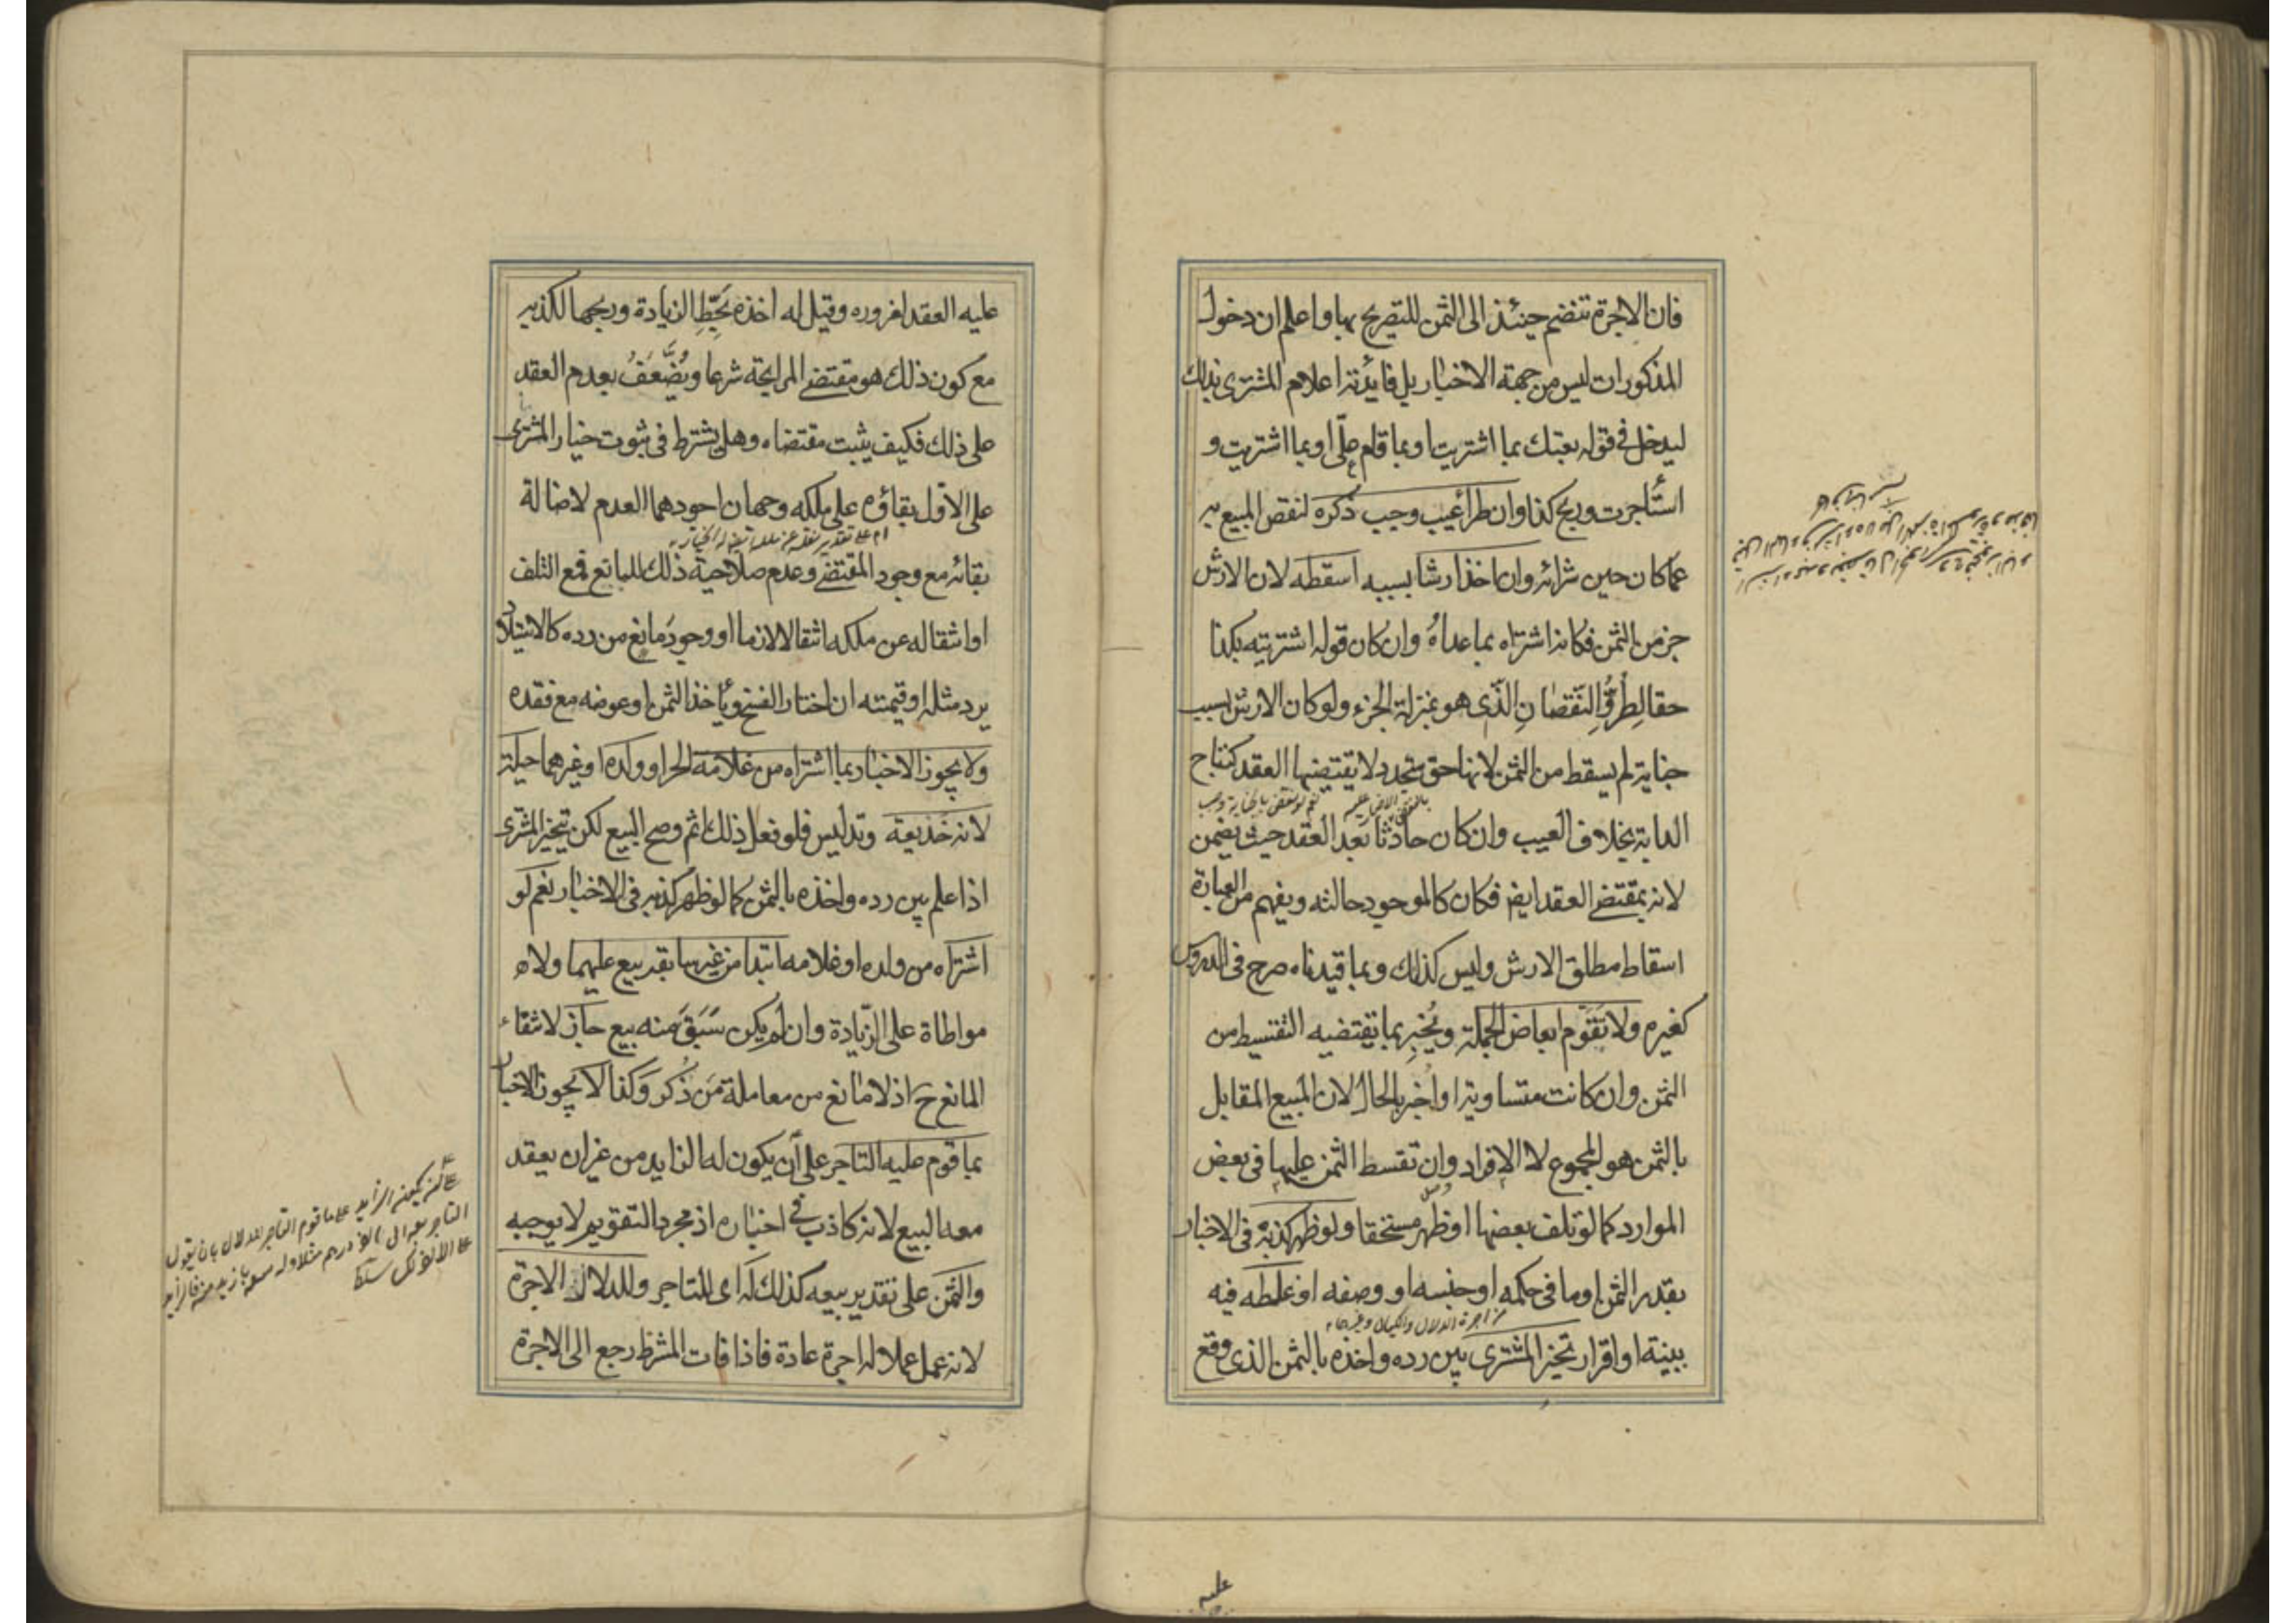 فان الاجرة تنضم حينئذ الى الثمن للتصريح بها واعلم ان دخول
المذكورات ليس من جهة الاخبار بل فايدته اعلام المشترى بذلك
ليدخل فى قوله بعتك بما اشتريت او بما قام علىّ او بما اشتريت و
استأجرت وربح كذا وان طرأ عيب وجب ذكره لنقص المبيع به
عما كان حين شرائه وان اخذ ارشا بسببه اسقطه لان الارش
جزء من الثمن فكانه اشتراه بما عداه وان كان قوله اشتريته بكذا
حقا لِطُرُوِّ النّقصَانِ الّذى هو بمنزلة الجزء ولو كان الارش بسبب
جناية لم يسقط من الثمن لانها حق متجدد لا يقتضيها العقد كنتاج
الدابة بخلاف العيب وان كان حادثا بعد العقد حيث يضمن
لانه بمقتضى العقد ايض فكان كالموجود حالته ويفهم من العبارة
اسقاط مطلق الارش وليس كذلك وبما قيدناه صرح فى الدروس
كغيره ولا تُقَوَّم ابعاض الجملة ويُخبِر بما تقتضيه التقسيط من
الثمن وان كانت متساوية او اخبر بالحال لان المبيع المقابل
بالثمن هو المجموع لا الافراد وان تقسط الثمن عليها فى بعض
الموارد كما لو تلف بعضها او ظهر مستحقا ولو ظهر كذبه فى الاخبار
بقدر الثمن او ما فى حكمه او جنسه او وصفه او غلطه فيه
من اجرة الدلال والكيال وغيرهما
ببينة او اقرار تخير المشترى بين رده واخذه بالثمن الذى وقع
عليه
عليه العقد لغروره وقيل له اخذه بحَطِّ الزيادة وربحها لكذبه
مع كون ذلك هو مقتضى المرابحة شرعا ويُضَّعَفُ بعدم العقد
على ذلك فكيف يثبت مقتضاه وهل يشترط فى ثبوت خيار المشترى
على الاول بقاؤه على ملكه وجهان اجودهما العدم لاصالة
بقائه مع وجود المقتضى وعدم صلاحية ذلك للمانع فمع التلف
او انتقاله عن ملكه انتقالا لازما او وجود مانع من رده كالاستيلاد
يرد مثله او قيمته ان اختار الفسخ ويأخذ الثمن او عوضه مع فقده
ولا يجوز الاخبار بما اشتراه من غلامه الحر او ولده او غيرهما حيلة
لانه خذيعة وتدليس فلو فعل ذلك اثم وصح البيع لكن تخير المشترى
اذا علم بين رده واخذه بالثمن كما لو ظهر كذبه فى الاخبار نعم لو
اشتراه من ولده او غلامه ابتدا من غير سابقة بيع عليهما ولا
مواطاة على الزّيادة وان لم يكن سَبَقَ منه بيع جاز لانتفاء
المانع ح اذ لا مانع من معاملة مَن ذُكر وَكذا لا يجوز الاخبار
بما قوم عليه التاجر على أن يكون له الزايد من غير ان يعقد
معه البيع لانه كاذب في اخباره اذ مجرد التقويم لا يوجبه
والثمن على تقدير بيعه كذلك له اى للتاجر وللدلال الاجرة
لانه عمل عملا له اجرة عادة فاذا فات المشترط رجع الى الاجرة